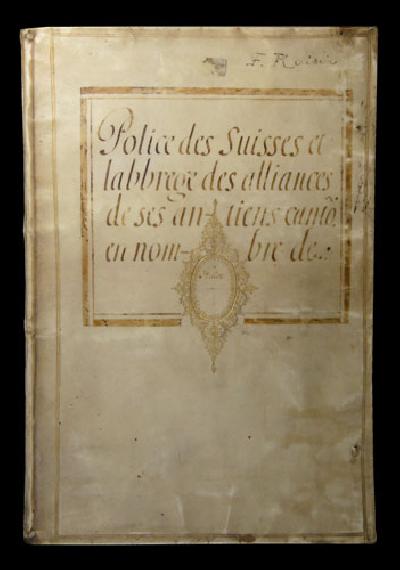 Police des Suisses et
labbrege des alliances
de ses an- tiens cantõ
en nom- bre de